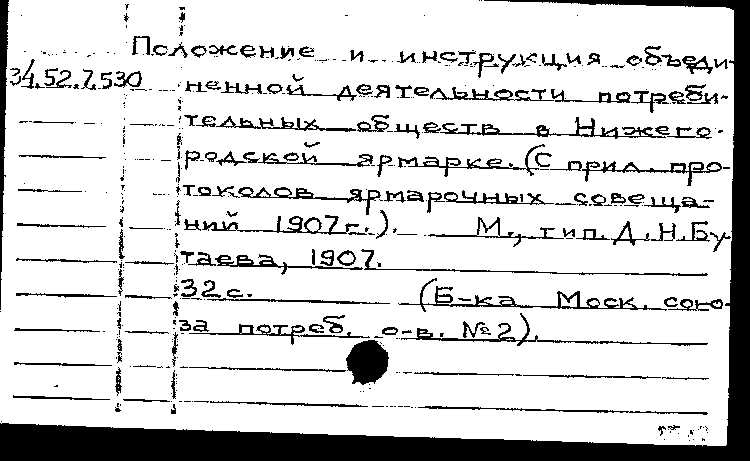 Положение и инструкция объеди-
34.52.7.530 ненной деятельности потреби-
тельных обществ в Нижего-
родской ярмарке. (С прил. про-
токолов ярмарочных совеща-
ний 1907г.). М., тип. Д.Н.Бу-
таева, 1907.
32с. (Б-ка Моск. сою-
за потреб. о-в. №2).